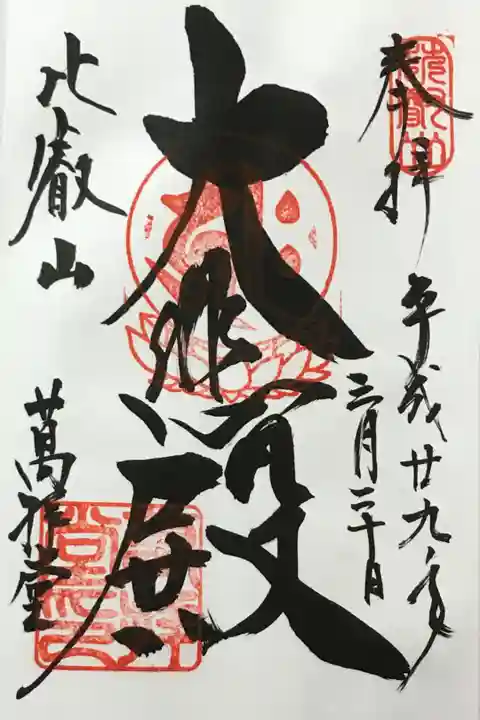 奉拝
平成廿九年
三月二十日
大悲殿
比叡山
萬拝堂